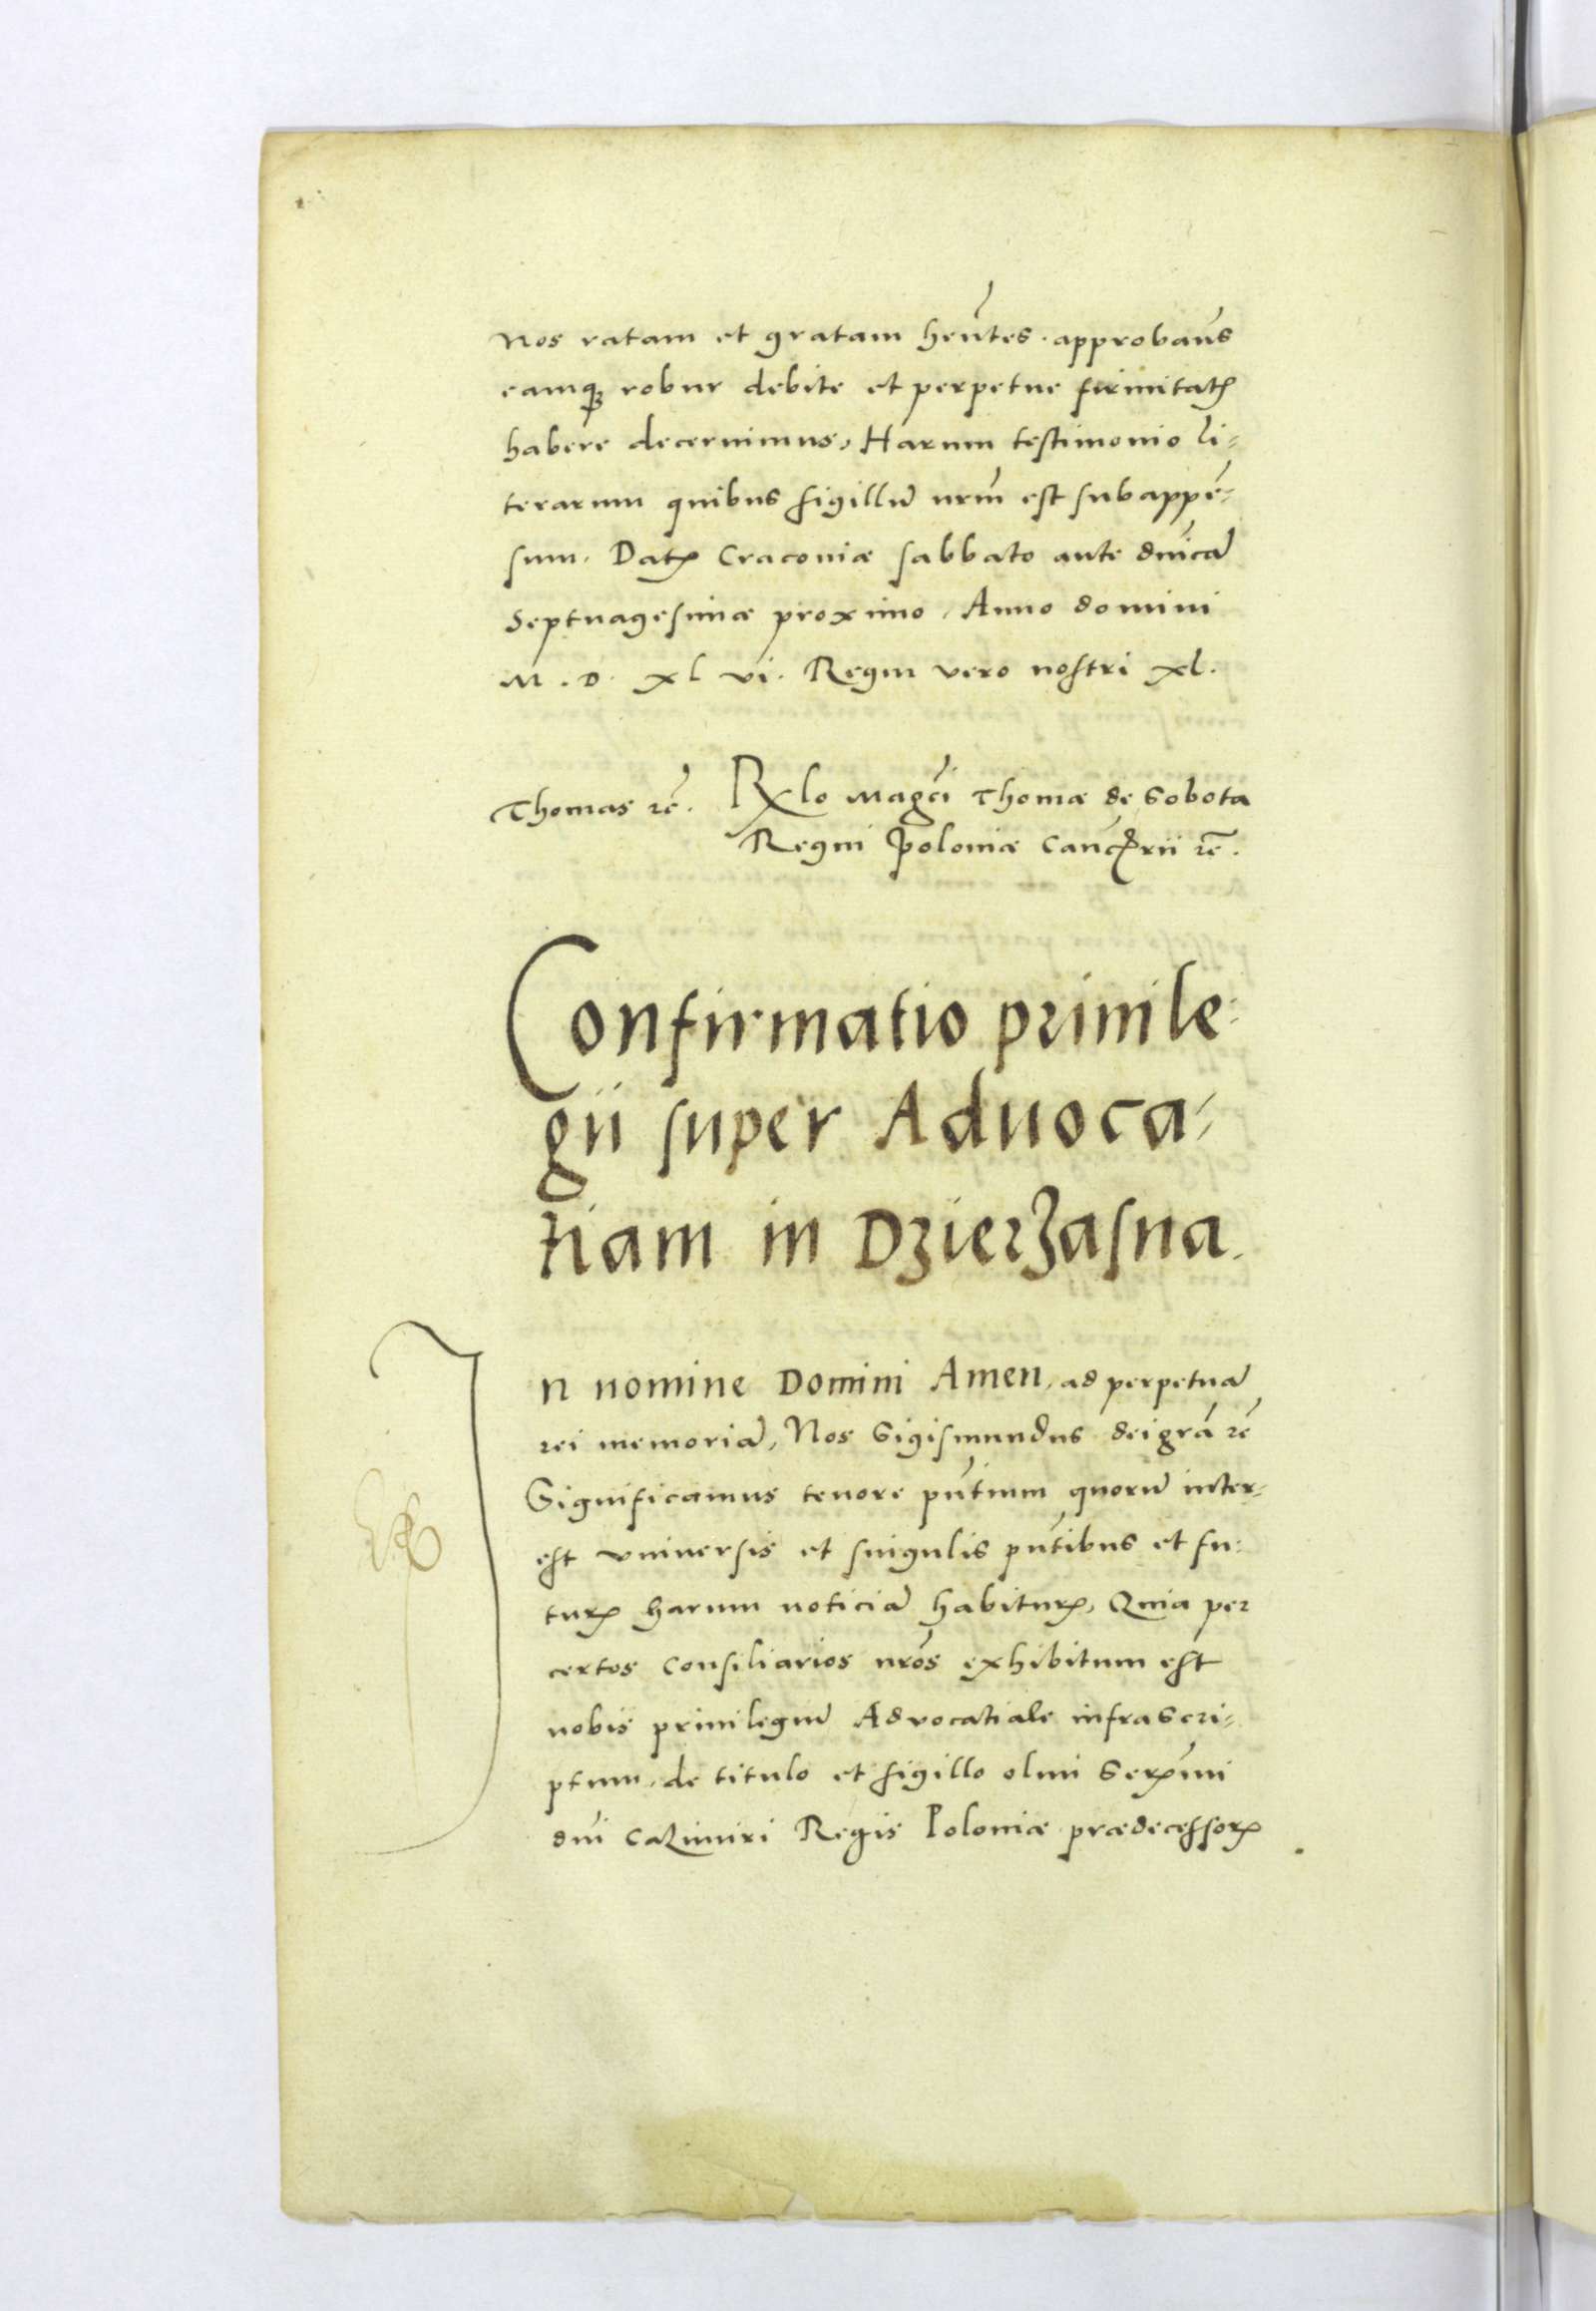 Nos ratam et gratam hen̄tes. approban̄s
eamqꝫ robur debite et perpetue firmitatꝭ
habere decernimus, Harum testimonio li-
terarum quibus sigillũ nrm̄ est subappē-
sum. Datꝭ Cracoviæ sabbato ante dnīcã
Septuagesimæ proximo. Anno domini
M. D. xl vi. Regni vero nostri xl.
Thomas rē. Rxlo Magcī Thomæ de Sobota
Regni Poloniæ Canc̄rii rē.
Confirmatio privile-
gii super Advoca-
tiam in Dzierzasna.
In nomine Domini Amen, ad perpetuã
rei memoriã, Nos Sigismundus dei grā rē
Significamus tenore pn̄tium quorũ inter-
est universis et singulis pn̄tibus et fu-
turꝭ harum noticiã habiturꝭ, Quia per
certos Consiliarios nrōs exhibitum est
nobis privilegiũ Advocatiale infrascri-
ptum, de titulo et sigillo olim Serꝭmi
dnī Cazimiri Regis Poloniæ prædecessorꝭ